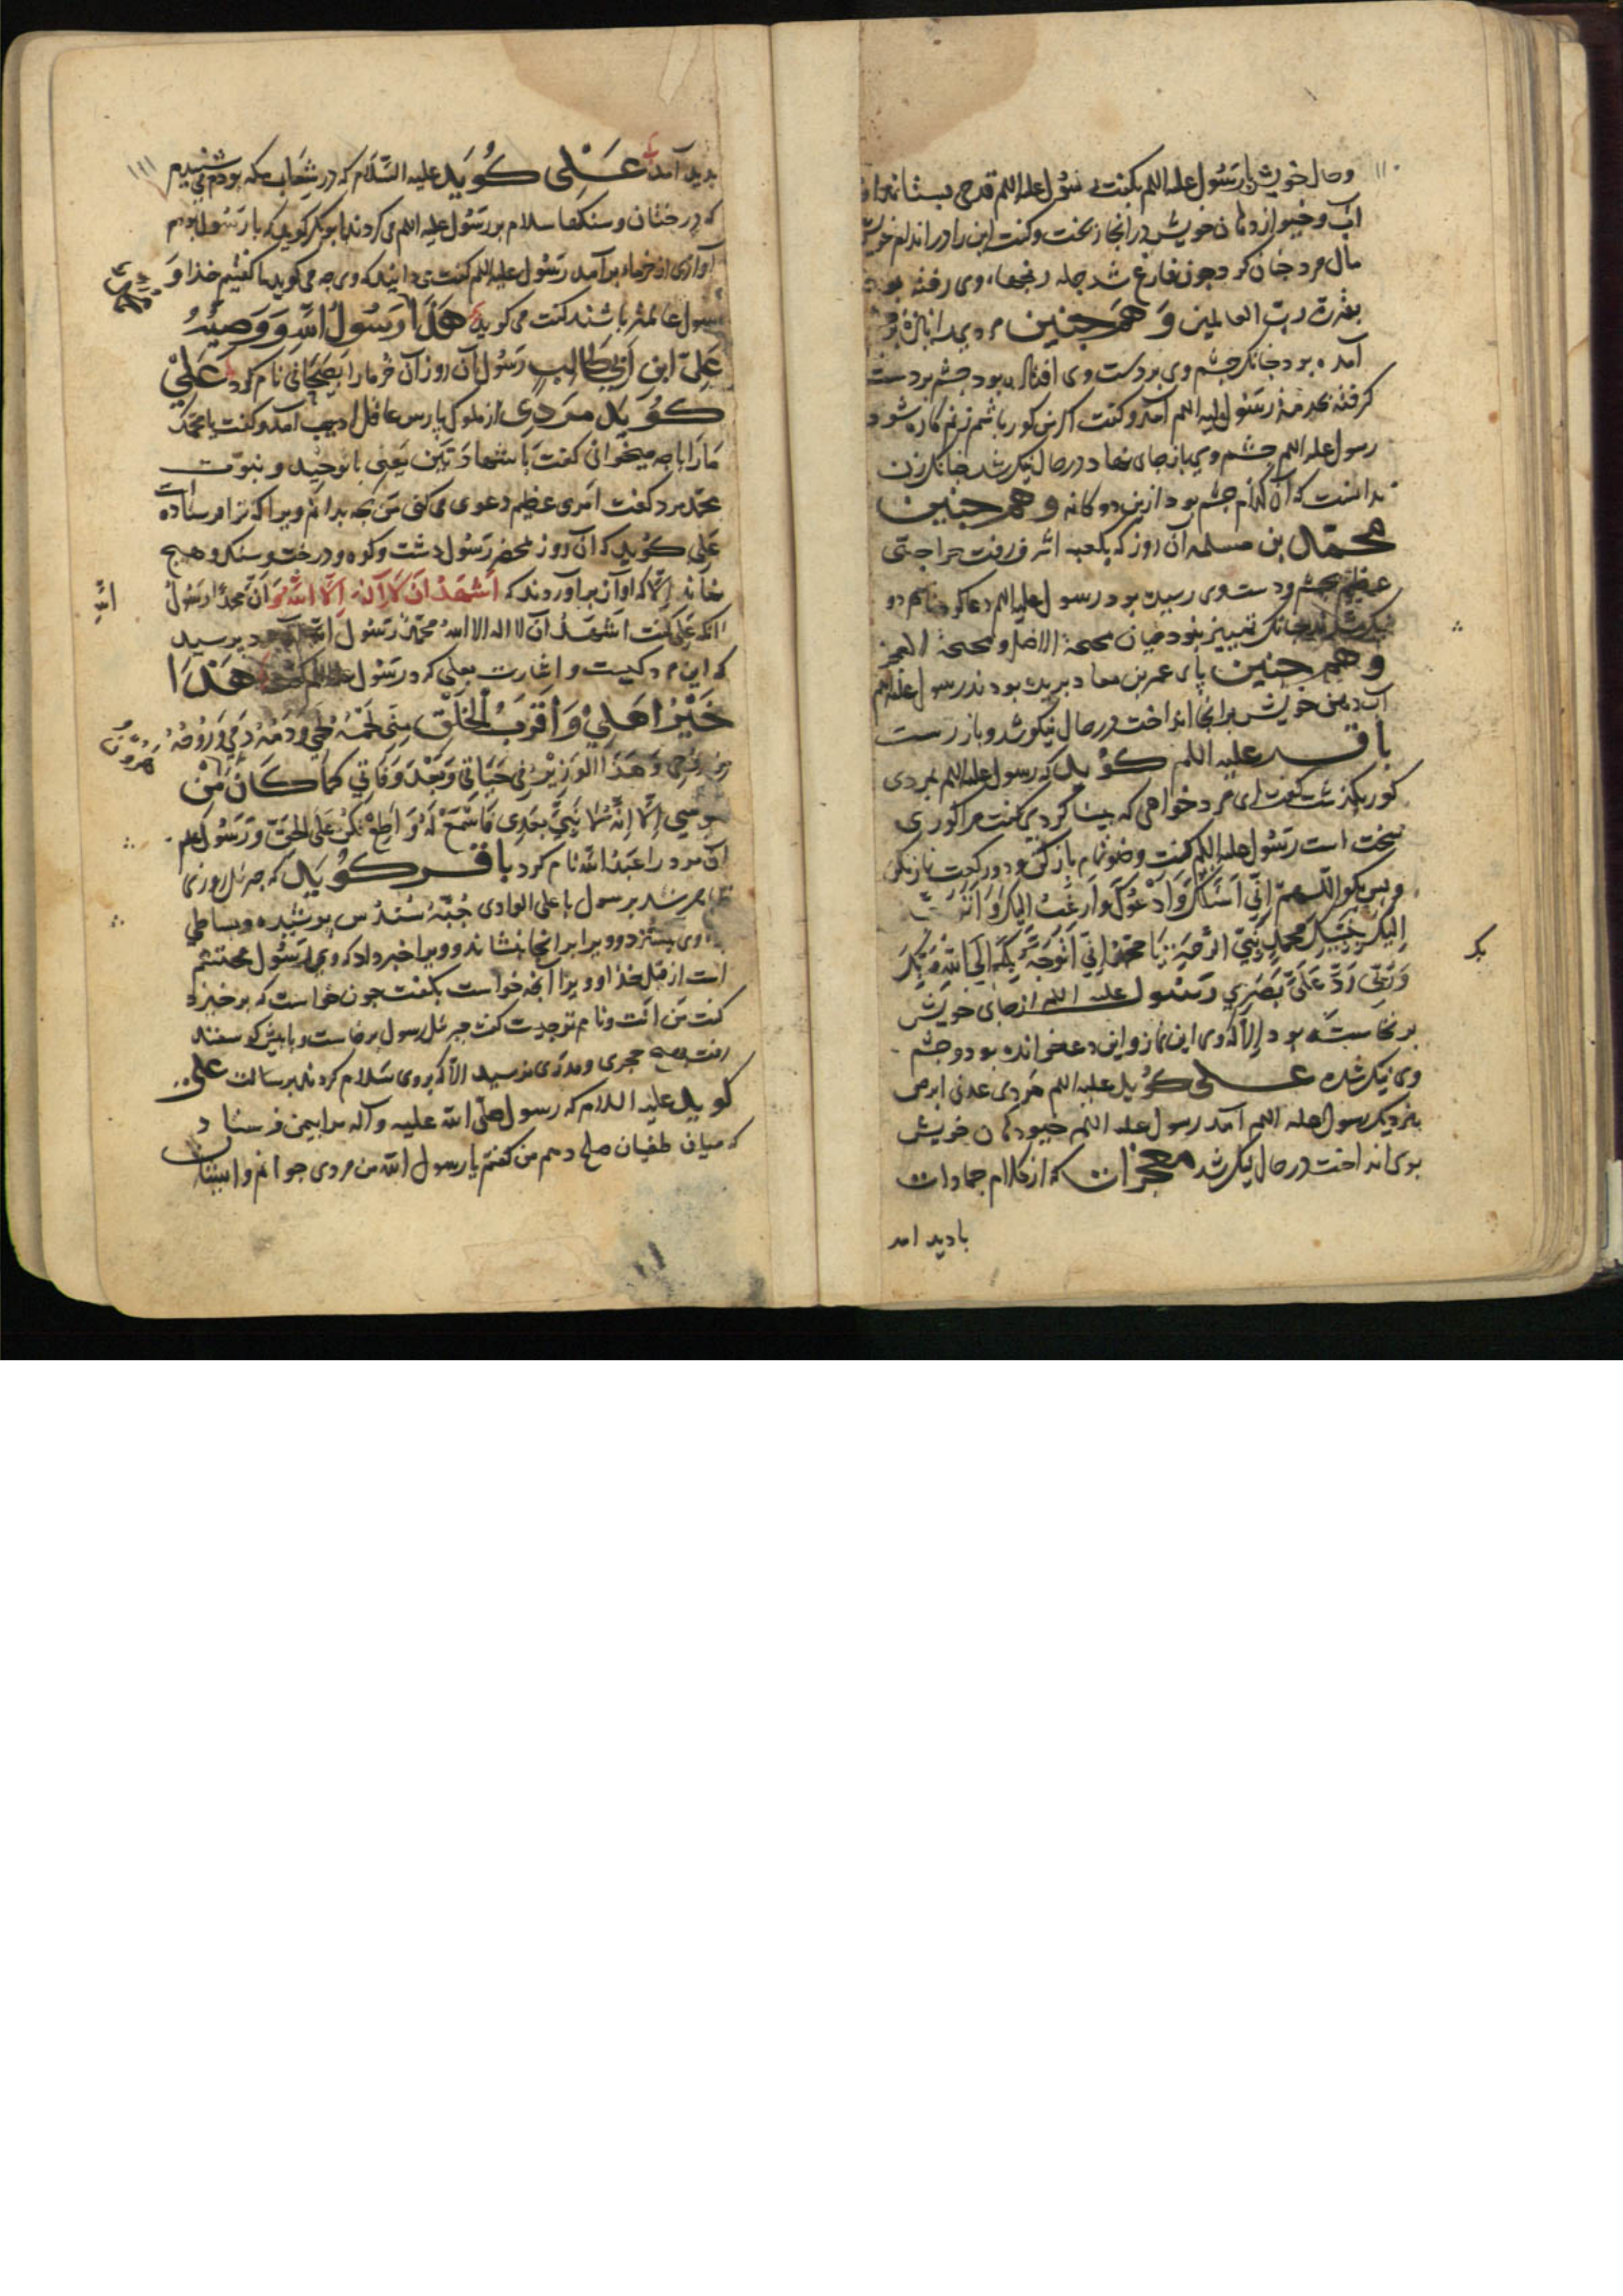 ۱۱۰
و حال خویش با رسول علیه السلم بگفت رسول علیه السلم قدحی بستاند
آب و خیو از دهان خویش در آنجا ریخت و گفت این را در اندام خویش
مال مرد چنان کرد چون فارغ شد جمله رنجها از وی رفته بود
بقدرت رب العالمین و همچنین مردی را
آمده بود چنانک چشم وی بر دست وی افتاده بود چشم بر دست
گرفته بخدمة رسول علیه السلم آمد و گفت اگر من کور باشم زنم کاره شود
رسول علیه السلم چشم وی باز جای نهاد در حال نیک شد چنانک زن
ندانست که آن کدام چشم بود ازین دوگانه و همچنین
محمد بن مسلمه آن روز که بکعب اشرف رفت جراحتی
عظیم بچشم و دست وی رسیده بود رسول علیه السلم دعا کرد
نیک شد چنانک تمییز نبود میان صحیحة الاصل و صحیحة المعجز
و همچنین پای عمر بن معاد بریده بودند رسول علیه السلم
آب دهن خویش بر آنجا انداخت در حال نیکو شد و باز رست
باقر علیه السلم گوید که رسول علیه السلم بمردی
کور بگذشت گفت ای مرد خواهی که بینا گردی گفت مرا کوری
سخت است رسول علیه السلم گفت وضو تمام باز کن و دو رکعت نماز بکن
و پس بگو اللهم انی اسئلک و ادعوک و ارغب الیک و اتوجه
الیک بنبیک محمد نبی الرحمة یا محمد انی اتوجه بک الی الله ربک
بک
و ربی رد علی بصری رسول علیه السلم از جای خویش
برنخاسته بود الا که وی این نماز و این دعا خوانده بود و چشم
وی نیک شده علی گوید علیه السلم مردی عدنی ابرص
بنزدیک رسول علیه السلم آمد رسول علیه السلم خیو دهان خویش
بوی انداخت در حال نیک شد معجزات که از کلام جمادات
بادید امد
۱۱۱
بدید آمد علی گوید علیه السلام که در شعاب مکه بودم می شنیدم
که درختان و سنگها سلام بر رسول علیه السلم می کردند ابوبکر گوید که با رسول بودم
آوازی از خرما برآمد رسول علیه السلم گفت می دانید که وی چه می گوید ما گفتیم خذا و
رسول عالمتر باشند گفت می گوید هذا رسول الله و وصیه
علی ابن ابی طالب رسول آن روز آن خرما را صیحانی نام کرد علی
گوید مردی از ملوک پارس عاقل ادیب آمد و گفت یا محمد
ما را با چه میخوانی گفت با شهادتین یعنی با توحید و نبوت
محمد مرد گفت امری عظیم دعوی می کنی من بچه بدانم و برا که ترا فرستاده است
علی گوید که آن روز بمحضر رسول دشت و کوه و درخت و سنگ و هیچ
نماند الا که اوآن برآوردند که اشهد ان لا اله الا الله و ان محمدا رسول
الله
انکه علی گفت اشهد ان لا اله الا الله محمد رسول الله آن مرد پرسید
که این مرد کیست و اشارت بعلی کرد رسول علیه السلم گفت هذا
خیر اهلی و اقرب الخلق منی لحمه لحمی و دمه دمی و روحه
روحی و هذا الوزیر فی حیاتی و بعد وفاتی کما کان من
هرون
موسی الا انه لا نبی بعدی فاسمع له و اطع تکن علی الحق و رسول علم
آن مرد را عبد الله نام کرد باقر گوید که جبرئیل روزی
ظاهر شد بر رسول با علی الوادی جبّه سندس پوشیده و بساطی
بزد و ویرا بر آنجا بنشاند و ویرا خبر داد که وی رسول محتشم
است از قبل خذا و ویرا آنچ خواست بگفت چون خواست که برخیزد
گفت من انت و نام تو چیست گفت جبرئیل رسول برخاست و با پیش گوسفند
رفت بهیچ حجری و مدری نرسید الا که بر وی سلام کردند برسالت علی
گوید علیه السلام که رسول صلی الله علیه و آله مرا بیمن فرستاد
که میان طفیان صلح دهم من گفتم یا رسول الله من مردی جوانم و ایشان